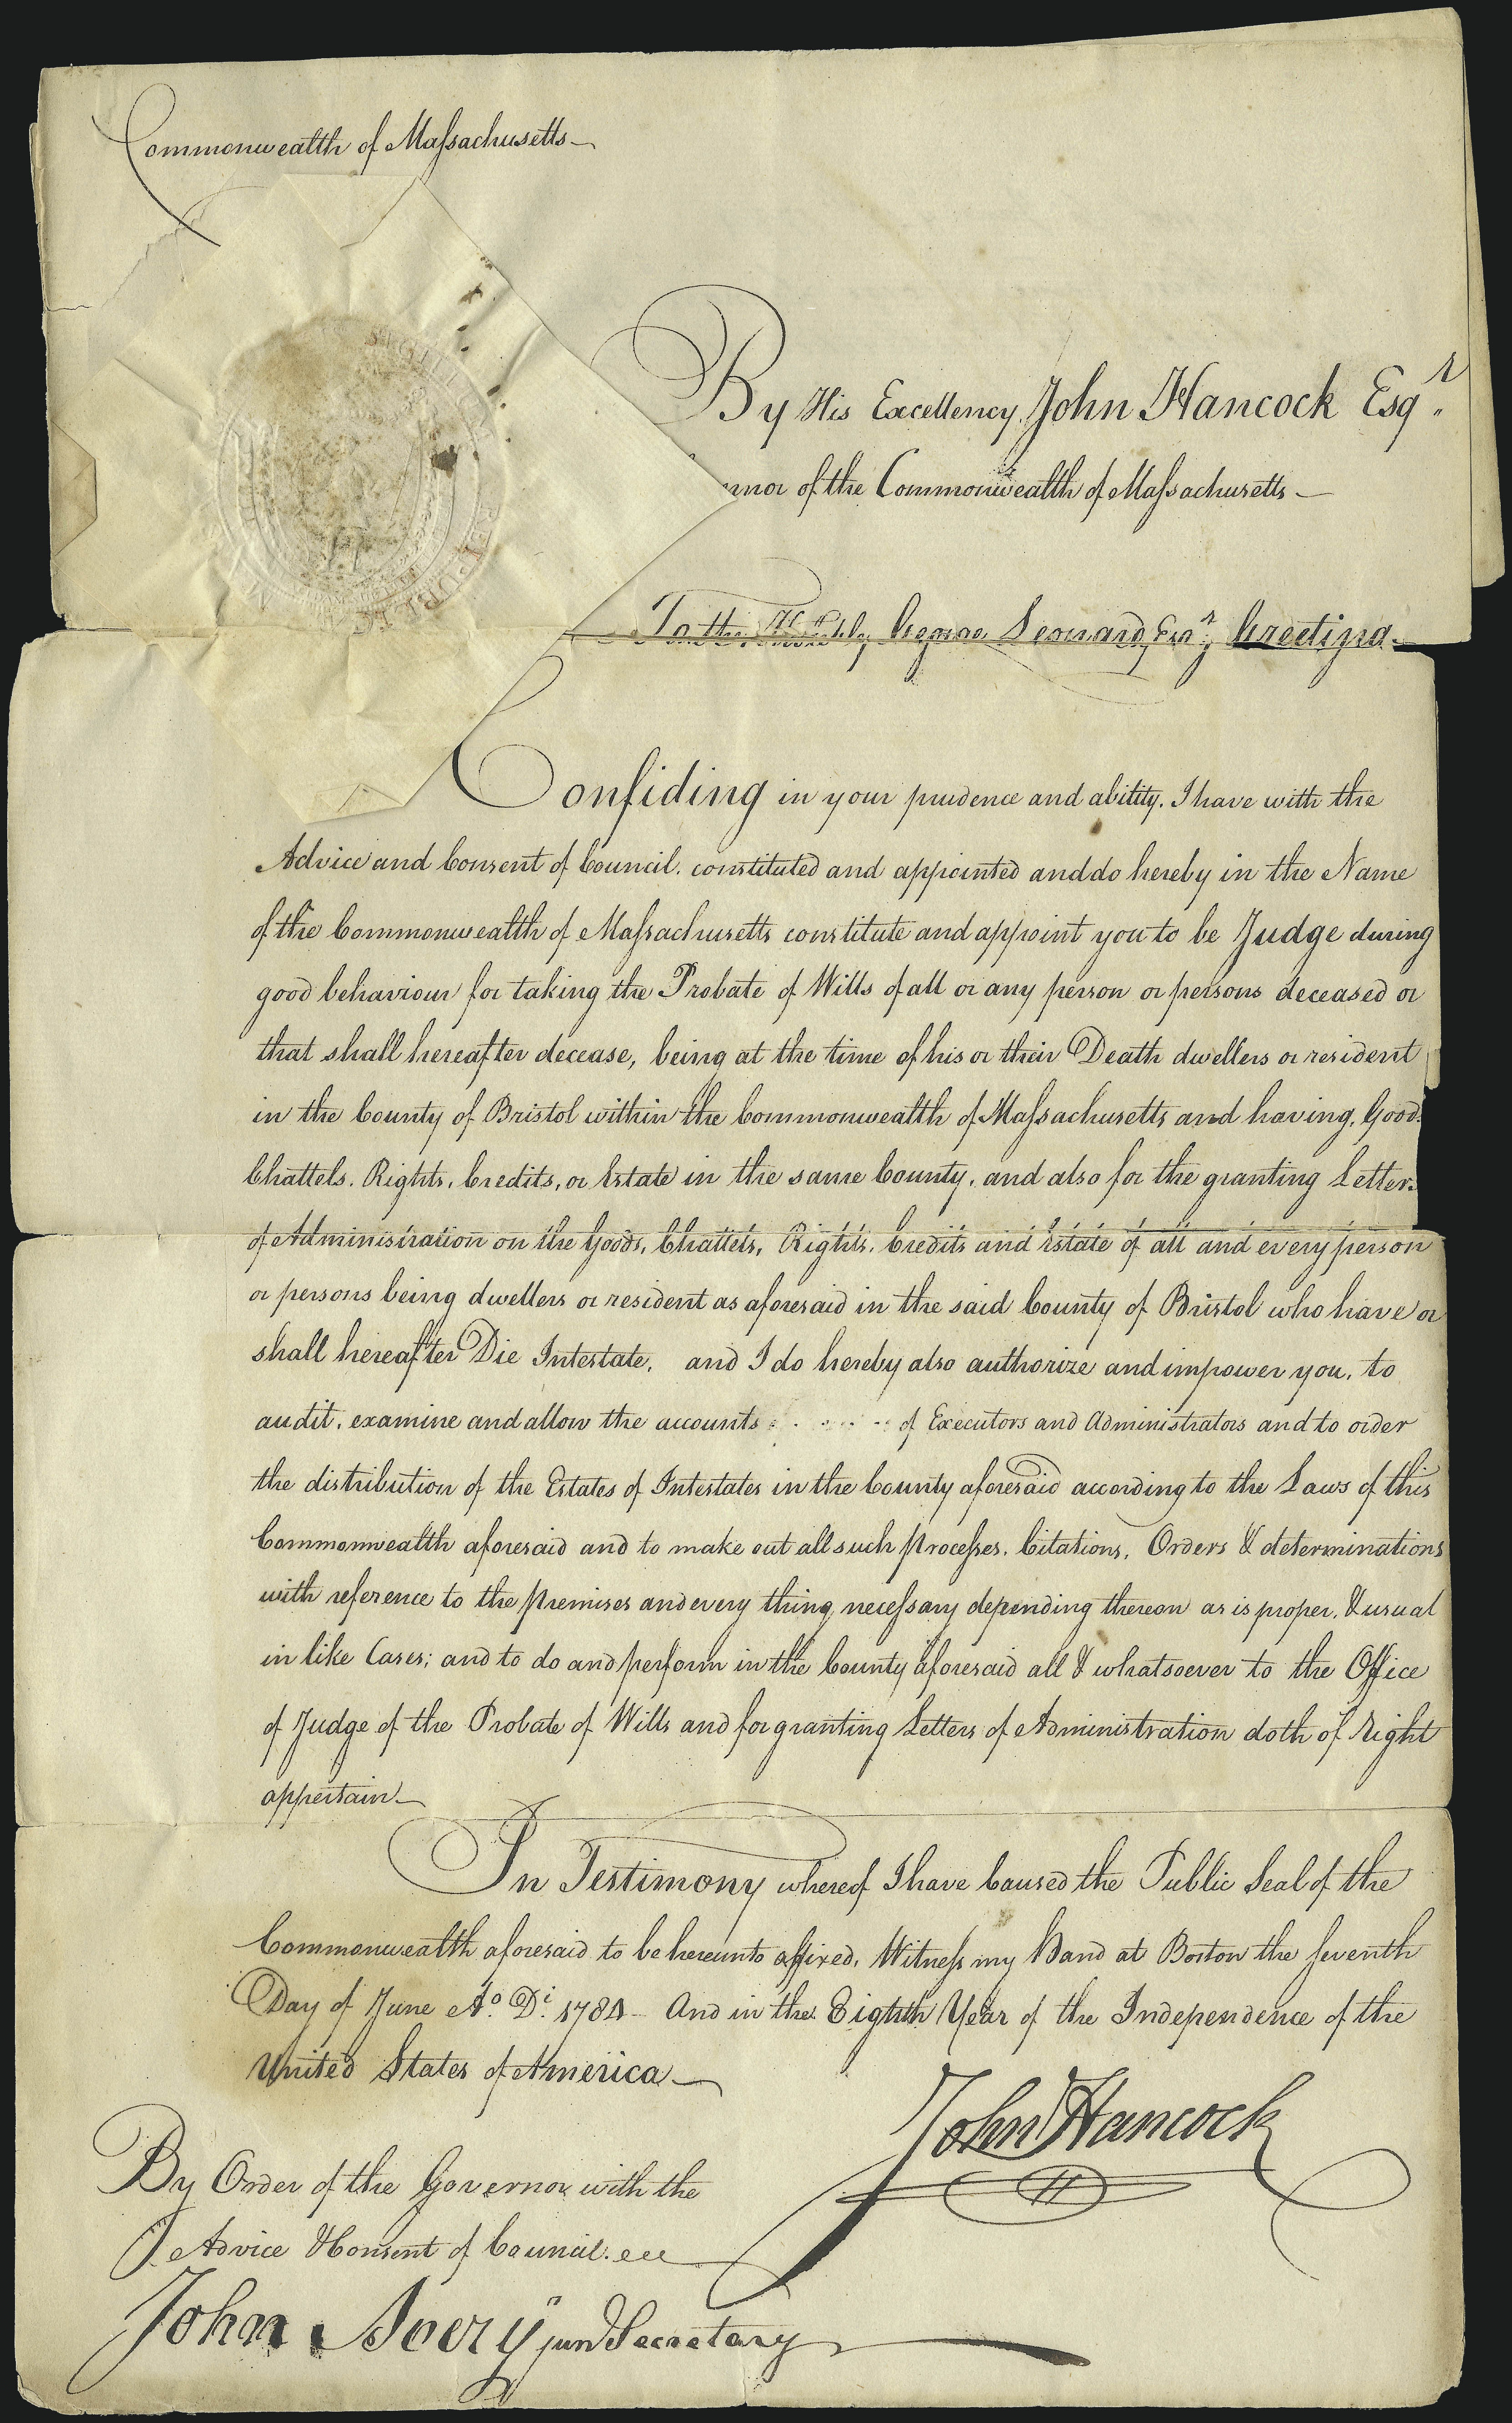 Commonwealth of Massachusetts
SIGILLUM REIPUBLICÆ
By His Excellency John Hancock Esqr.
rnor of the Commonwealth of Massachusetts
To the Honble. George Leonard, Esqr., Greeting.
Confiding in your prudence and ability. I have with the
Advice and Consent of Council. constituted and appointed and do hereby in the Name
of the Commonwealth of Massachusetts constitute and appoint you to be Judge during
good behaviour for taking the Probate of Wills of all or any person or persons deceased or
that shall hereafter decease, being at the time of his or their Death dwellers or resident
in the County of Bristol within the Commonwealth of Massachusetts and having, Goods
Chattels. Rights, Credits, or Estate in the same County, and also for the granting Letters
of Administration on the Goods, Chattels, Rights, Credits and Estate of all and every person
or persons being dwellers or resident as aforesaid in the said County of Bristol who have or
shall hereafter Die Intestate, and I do hereby also authorize and impower you, to
audit, examine and allow the accounts of Executors and Administrators and to order
the distribution of the Estates of Intestates in the County aforesaid according to the Laws of this
Commonwealth aforesaid and to make out all such Processes, Citations, Orders & determinations
with reference to the premises and every thing necessary depending thereon as is proper, & usual
in like Cases; and to do and perform in the County aforesaid all & whatsoever to the Office
of Judge of the Probate of Wills and for granting Letters of Administration doth of Right
appertain
In Testimony whereof I have Caused the Public Seal of the
Commonwealth aforesaid to be hereunto affixed, Witness my Hand at Boston the seventh
Day of June Ao. Di. 1784 And in the Eighth Year of the Independence of the
United States of America
John Hancock
By Order of the Governor with the
Advice & Consent of Council.
John Avery jun Secretary